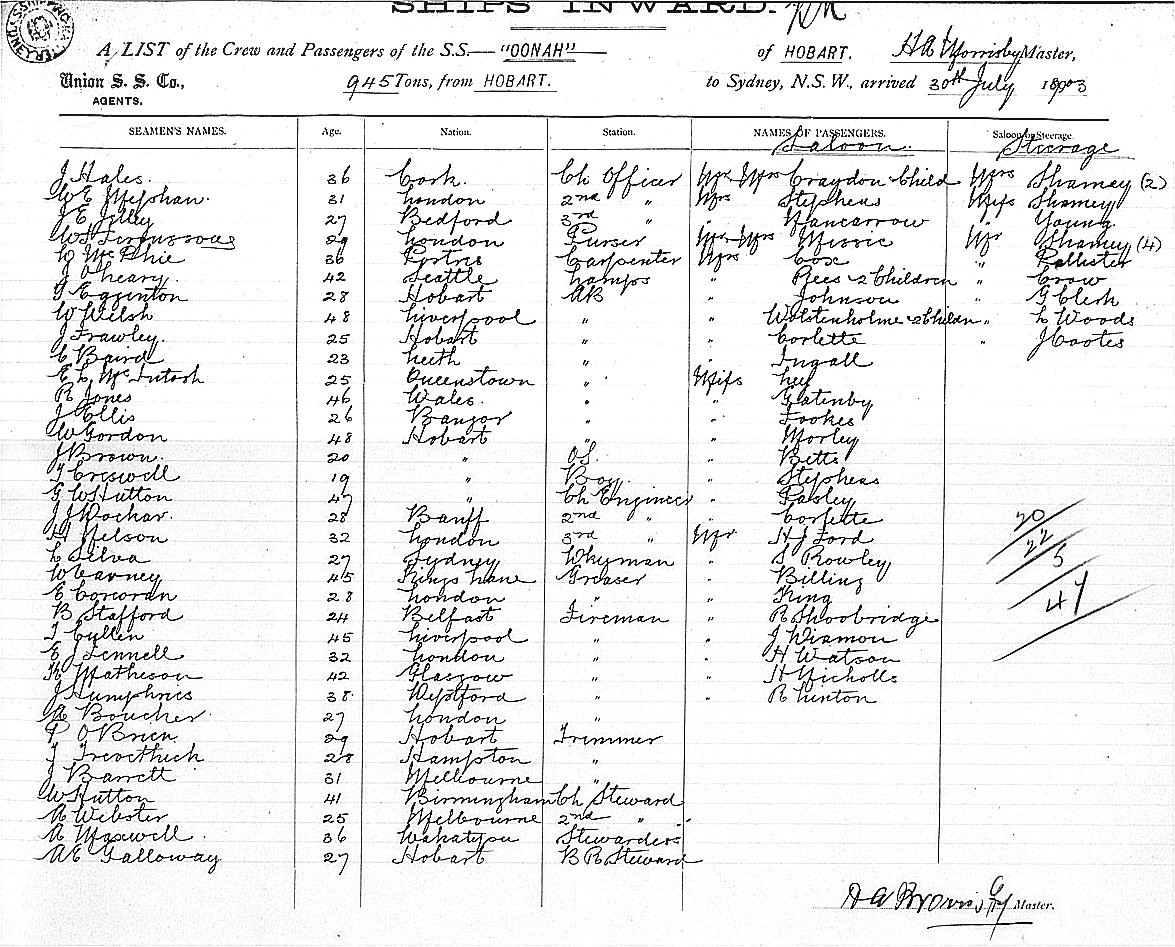 SHIPS INWARD.
A LIST of the Crew and Passengers of the S.S.— "OONAH" of HOBART. Master,
Union S. S. Co., 945 Tons, from HOBART. to Sydney, N.S.W., arrived 30th July 1903
AGENTS.
SEAMEN'S NAMES. Age. Nation. Station. NAMES OF PASSENGERS. Saloon or Steerage.
Saloon. Steerage
J Hales. 36 Cork. Ch Officer Mr Mrs Craydon Child Mrs Shamey (2)
31 London 2nd " Mrs Stephens Miss Shamey
27 Bedford 3rd " " Nancarrow " Young
29 London Purser Mr Mrs Missie Mr Shamey (4)
W McPhie 36 Carpenter Mrs Cox " Pallister
J OHeary. 42 Seattle Lamps " Rees 2 Children " Crow
G Egginton 28 Hobart AB " Johnson " G Clerk
W Welsh 48 Liverpool " " Wolstenholme 2 Childn " L Woods
J Frawley. 25 Hobart " " Corlette " J Cootes
C Baird 23 Leith " " Ingall
E L McIntosh 25 Queenstown " Miss
R Jones 46 Wales. " " Gatenby
J Ellis 26 Bangor " " Fookes
W Gordon 48 Hobart " " Morley
J Brown. 20 " OS. " Betts
T Criswell 19 " Boy. " Stephens
G W Hutton 47 " Ch Engineer " Pasley
28 Banff 2nd " " Corlette
H Nelson 32 London 3rd " Mr H J Ford
L Silva 27 Sydney Whyman " S Rowley
W Carney 45 Kings Lane Greaser " Billing
E Corcoran 28 London " " King
B Stafford 24 Belfast Fireman " R Shoobridge
T Cullen 45 Liverpool " "
E J Fennell 32 London " " H Watson
K Matheson 42 Glasgow " " H Nicholls
J Humphries 38. " " R Linton
A Boucher. 27 London "
P OBrien 29 Hobart Trimmer
J 28 Hampton "
J Barrett 31 Melbourne "
W Hutton 41 Birmingham Ch Steward
A Webster 25 Melbourne 2nd " "
A Maxwell. 36 Wakatipu Stewardess
A E Galloway 27 Hobart B R Steward
20
22
5
47
Master.